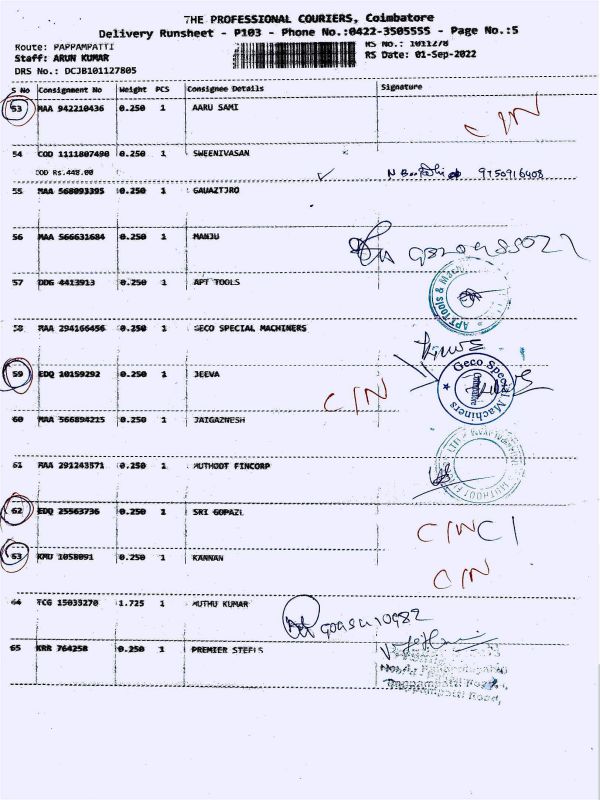 THE PROFESSIONAL COURIERS, Coimbatore
Delivery Runsheet - P103 - Phone No.:0422-3505555 - Page No.:5
Route: PAPPAMPATTI RS No.: 1011278
Staff: ARUN KUMAR RS Date: 01-Sep-2022
DRS No.: DCJB101127805
S No Consignment No Weight PCS Consignee Details Signature
53 MAA 942210436 0.250 1 AARU SAMI CIN
54 COD 1111807490 0.250 1 SWEENIVASAN
COD Rs.448.00 9750916408
55 MAA 568093395 0.250 1 GAUAZTJRO
56 MAA 566631684 0.250 1 MANJU
57 DDG 4413913 0.250 1 APT TOOLS APT Tools &
58 MAA 294166456 0.250 1 GECO SPECIAL MACHINERS
59 EDQ 10159292 0.250 1 JEEVA CIN Geco Special Machiners Coimbatore
60 MAA 566894215 0.250 1 JAIGAZNESH
61 MAA 291243571 0.250 1 MUTHOOT FINCORP MUTHOOT
62 EDQ 25563736 0.250 1 SRI GOPAZL CINCI
63 KMU 1058091 0.250 1 KANNAN CIN
64 TCG 15033270 1.725 1 MUTHU KUMAR
65 KRR 764258 0.250 1 PREMIER STEELS
Pappampatti Road,